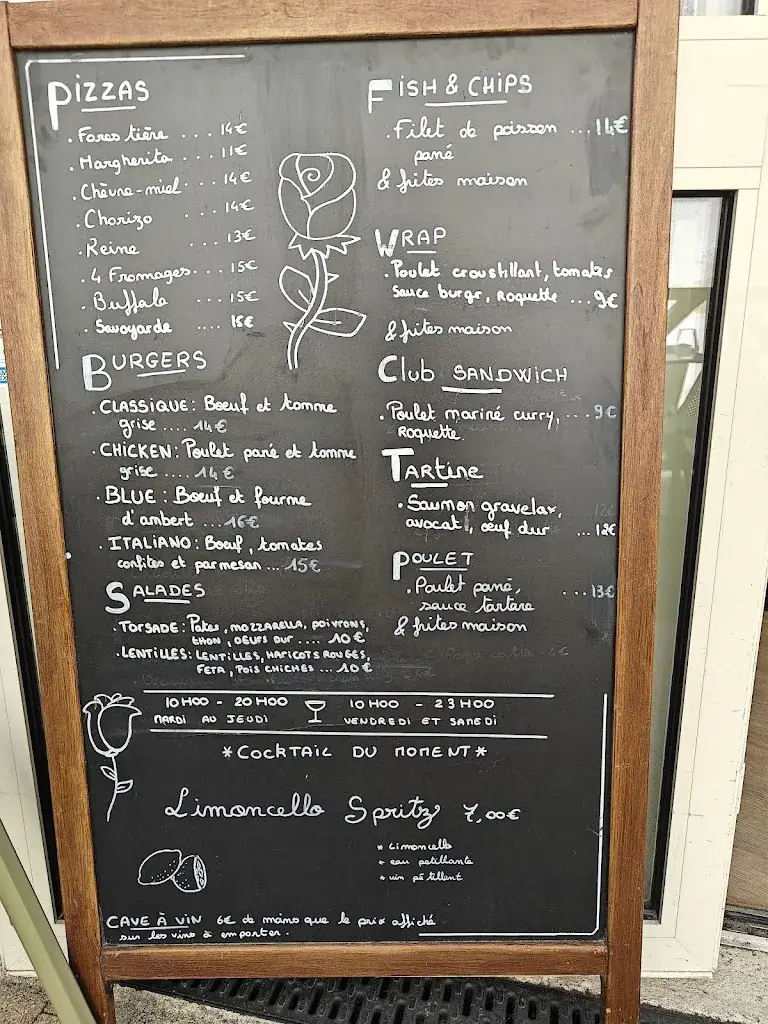 PIZZAS
. Forestière .... 14€
. Margherita ... 11€
. Chèvre-miel ... 14€
. Chorizo ... 14€
. Reine ... 13€
. 4 Fromages ... 15€
. Buffala ... 15€
. Savoyarde .... 15€
BURGERS
. CLASSIQUE : Boeuf et tomme
grise .... 14€
. CHICKEN : Poulet pané et tomme
grise .... 14€
. BLUE : Boeuf et fourme
d'ambert ... 16€
. ITALIANO : Boeuf, tomates
confites et parmesan ... 15€
SALADES
. TORSADE : Pates, MOZZARELLA, POIVRONS,
THON, OEUFS DUR .... 10€
. LENTILLES : LENTILLES, HARICOTS ROUGES,
FETA, POIS CHICHES ... 10€
FISH & CHIPS
. Filet de poisson ... 14€
pané
& frites maison
WRAP
. Poulet croustillant, tomates
sauce burgr, Roquette ... 9€
& frites maison
Club SANDWICH
. Poulet mariné curry, ... 9€
Roquette.
TARTINE
. Saumon gravelax,
avocat, œuf dur ... 12€
POULET
. Poulet pané, ... 13€
sauce tartare
& frites maison
10H00 - 20H00 10H00 - 23H00
MARDI AU JEUDI VENDREDI ET SAMEDI
*COCKTAIL DU MOMENT*
Limoncello Spritz 7,00€
* Limoncello
* eau petillante
* vin pétillant
CAVE À VIN 6€ de moins que le prix affiché
sur les vins à emporter.